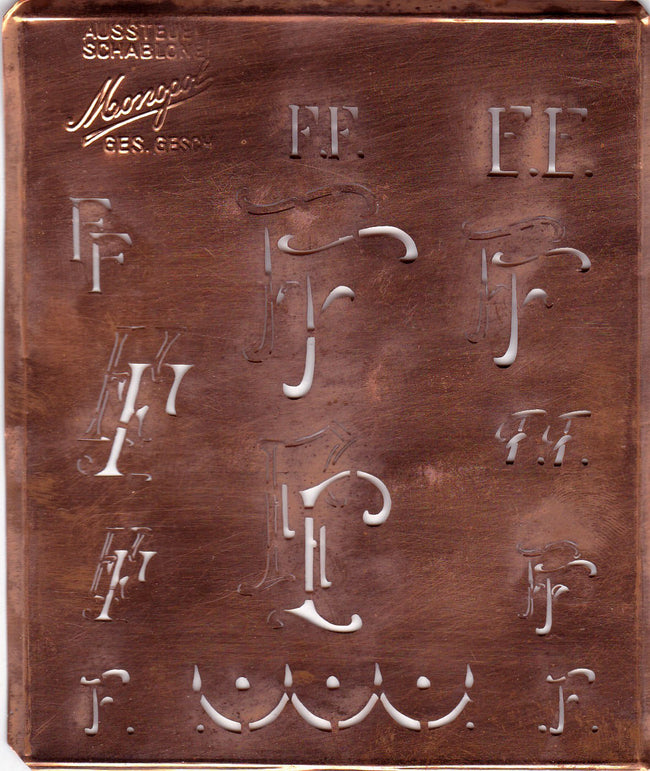 AUSSTEUER
SCHABLONE
Monopol
GES. GESCH
F.F.
F.F.
FF
FF
FF
FF
F.F.
FF
FF
FF
F.
F.